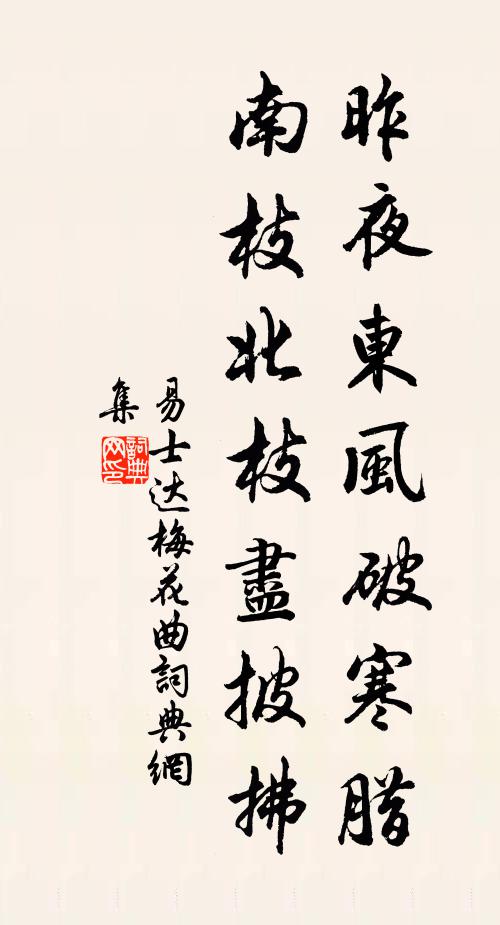 昨夜東風破寒腊
南枝北枝盡披拂
易士达梅花曲詞典網
集
詞典网印